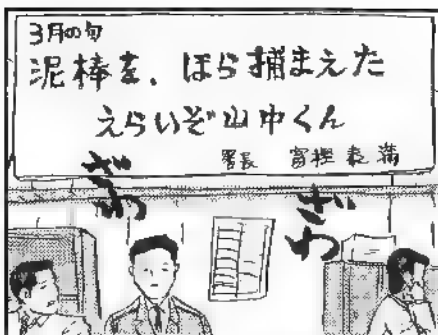 3月の句
泥棒を、ほら捕まえた
えらいぞ山中くん
署長 富樫
ざわ
ざわ